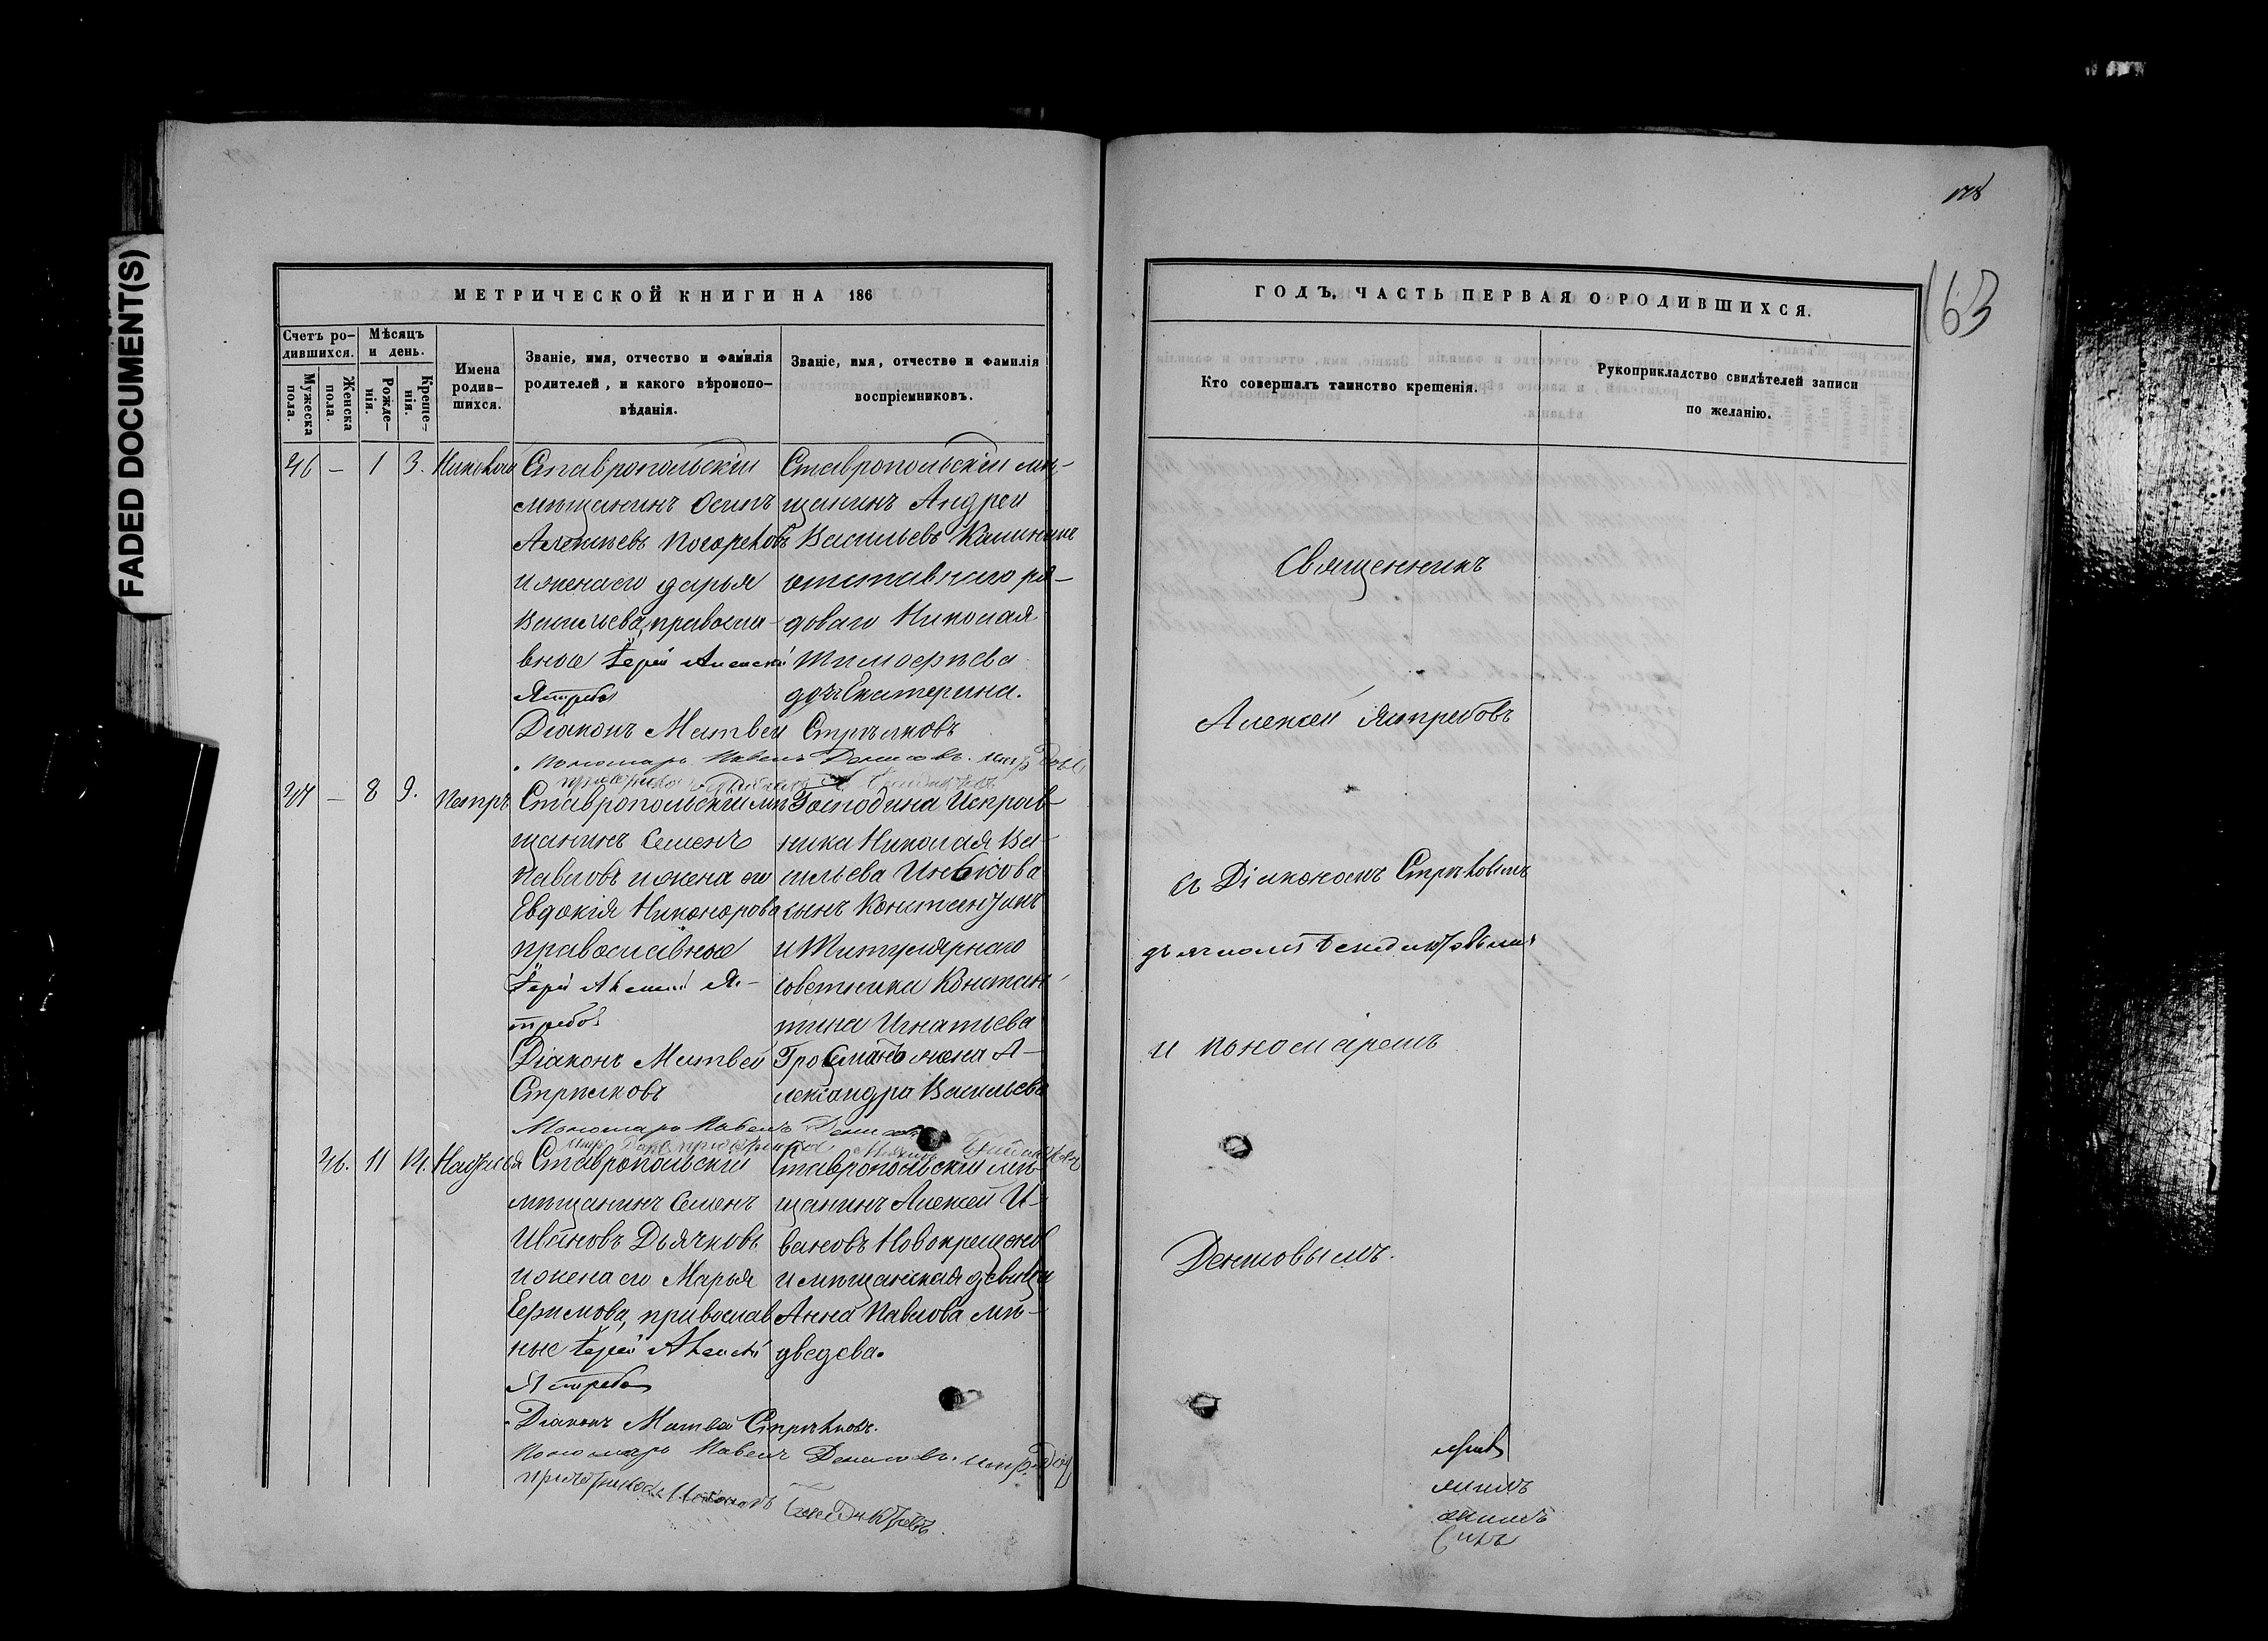 FADED DOCUMENT(S)
163
МЕТРИЧЕСКОЙ КНИГИ НА 186
Счетъ ро-
дившихся.
Мужеска пола.
Женска пола.
Мѣсяцъ
и день.
Рожде-
нія.
Креще-
нія.
Имена
родив-
шихся.
Званіе, имя, отчество и фамилія
родителей, и какого вѣроиспо-
вѣданія.
Званіе, имя, отчество и фамилія
воспріемниковъ.
46 — 1 3. Николай
Ставропольскій
мѣщанинъ Осипъ
и жена его Дарья
Васильева, правосла-
вные Іерей Алексій
Ястребов
Діаконъ Матвей Стрѣлковъ
Пономарь Павелъ Денисовъ.
Ставропольскій мѣ-
щанинъ Андрей
Васильевъ Калининъ
отставнаго ря-
доваго Николая
Тимофѣева
дочь Екатерина.
47 — 8 9. Петръ
Ставропольскій мѣ-
щанинъ Семенъ
Павловъ и жена его
Евдокія Никонорова
православные
Іерей Алексій Яс-
требов
Діаконъ Матвей
Стрѣлковъ
Пономарь Павелъ Денисов
Господина Исправ-
ника Николая Ва-
сильева
сынъ Константинъ
и Титулярнаго
советника Констан-
тина Игнатьева
жена А-
лександра Васильева
46. 11 14. Наталія
Ставропольскій
мѣщанинъ Семенъ
Ивановъ Дьячковъ
и жена его Марья
Ефимова, православ-
ные Іерей Алексій
Ястребов
Діаконъ Матвей Стрѣлковъ.
Пономарь Павелъ Денисовъ.
Ставропольскій мѣ-
щанинъ Алексей И-
вановъ Новокрещенов
и мѣщанская девица
Анна Павлова Мѣ-
дведева.
ГОДЪ, ЧАСТЬ ПЕРВАЯ О РОДИВШИХСЯ.
Кто совершалъ таинство крещенія.
Рукоприкладство свидѣтелей записи
по желанію.
Священникъ
Алексей Ястребовъ
съ Діакономъ Стрѣлковымъ
и пономаремъ
Денисовымъ.